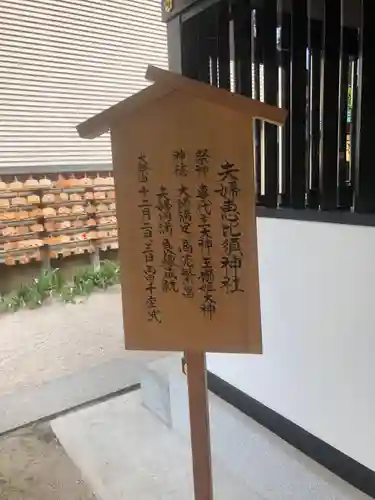 夫婦恵比須神社
祭神 事代主大神 玉櫛姫大神
神徳 大漁満足 商売繁昌
夫婦円満 良縁成就
大祭 十二月二日三日